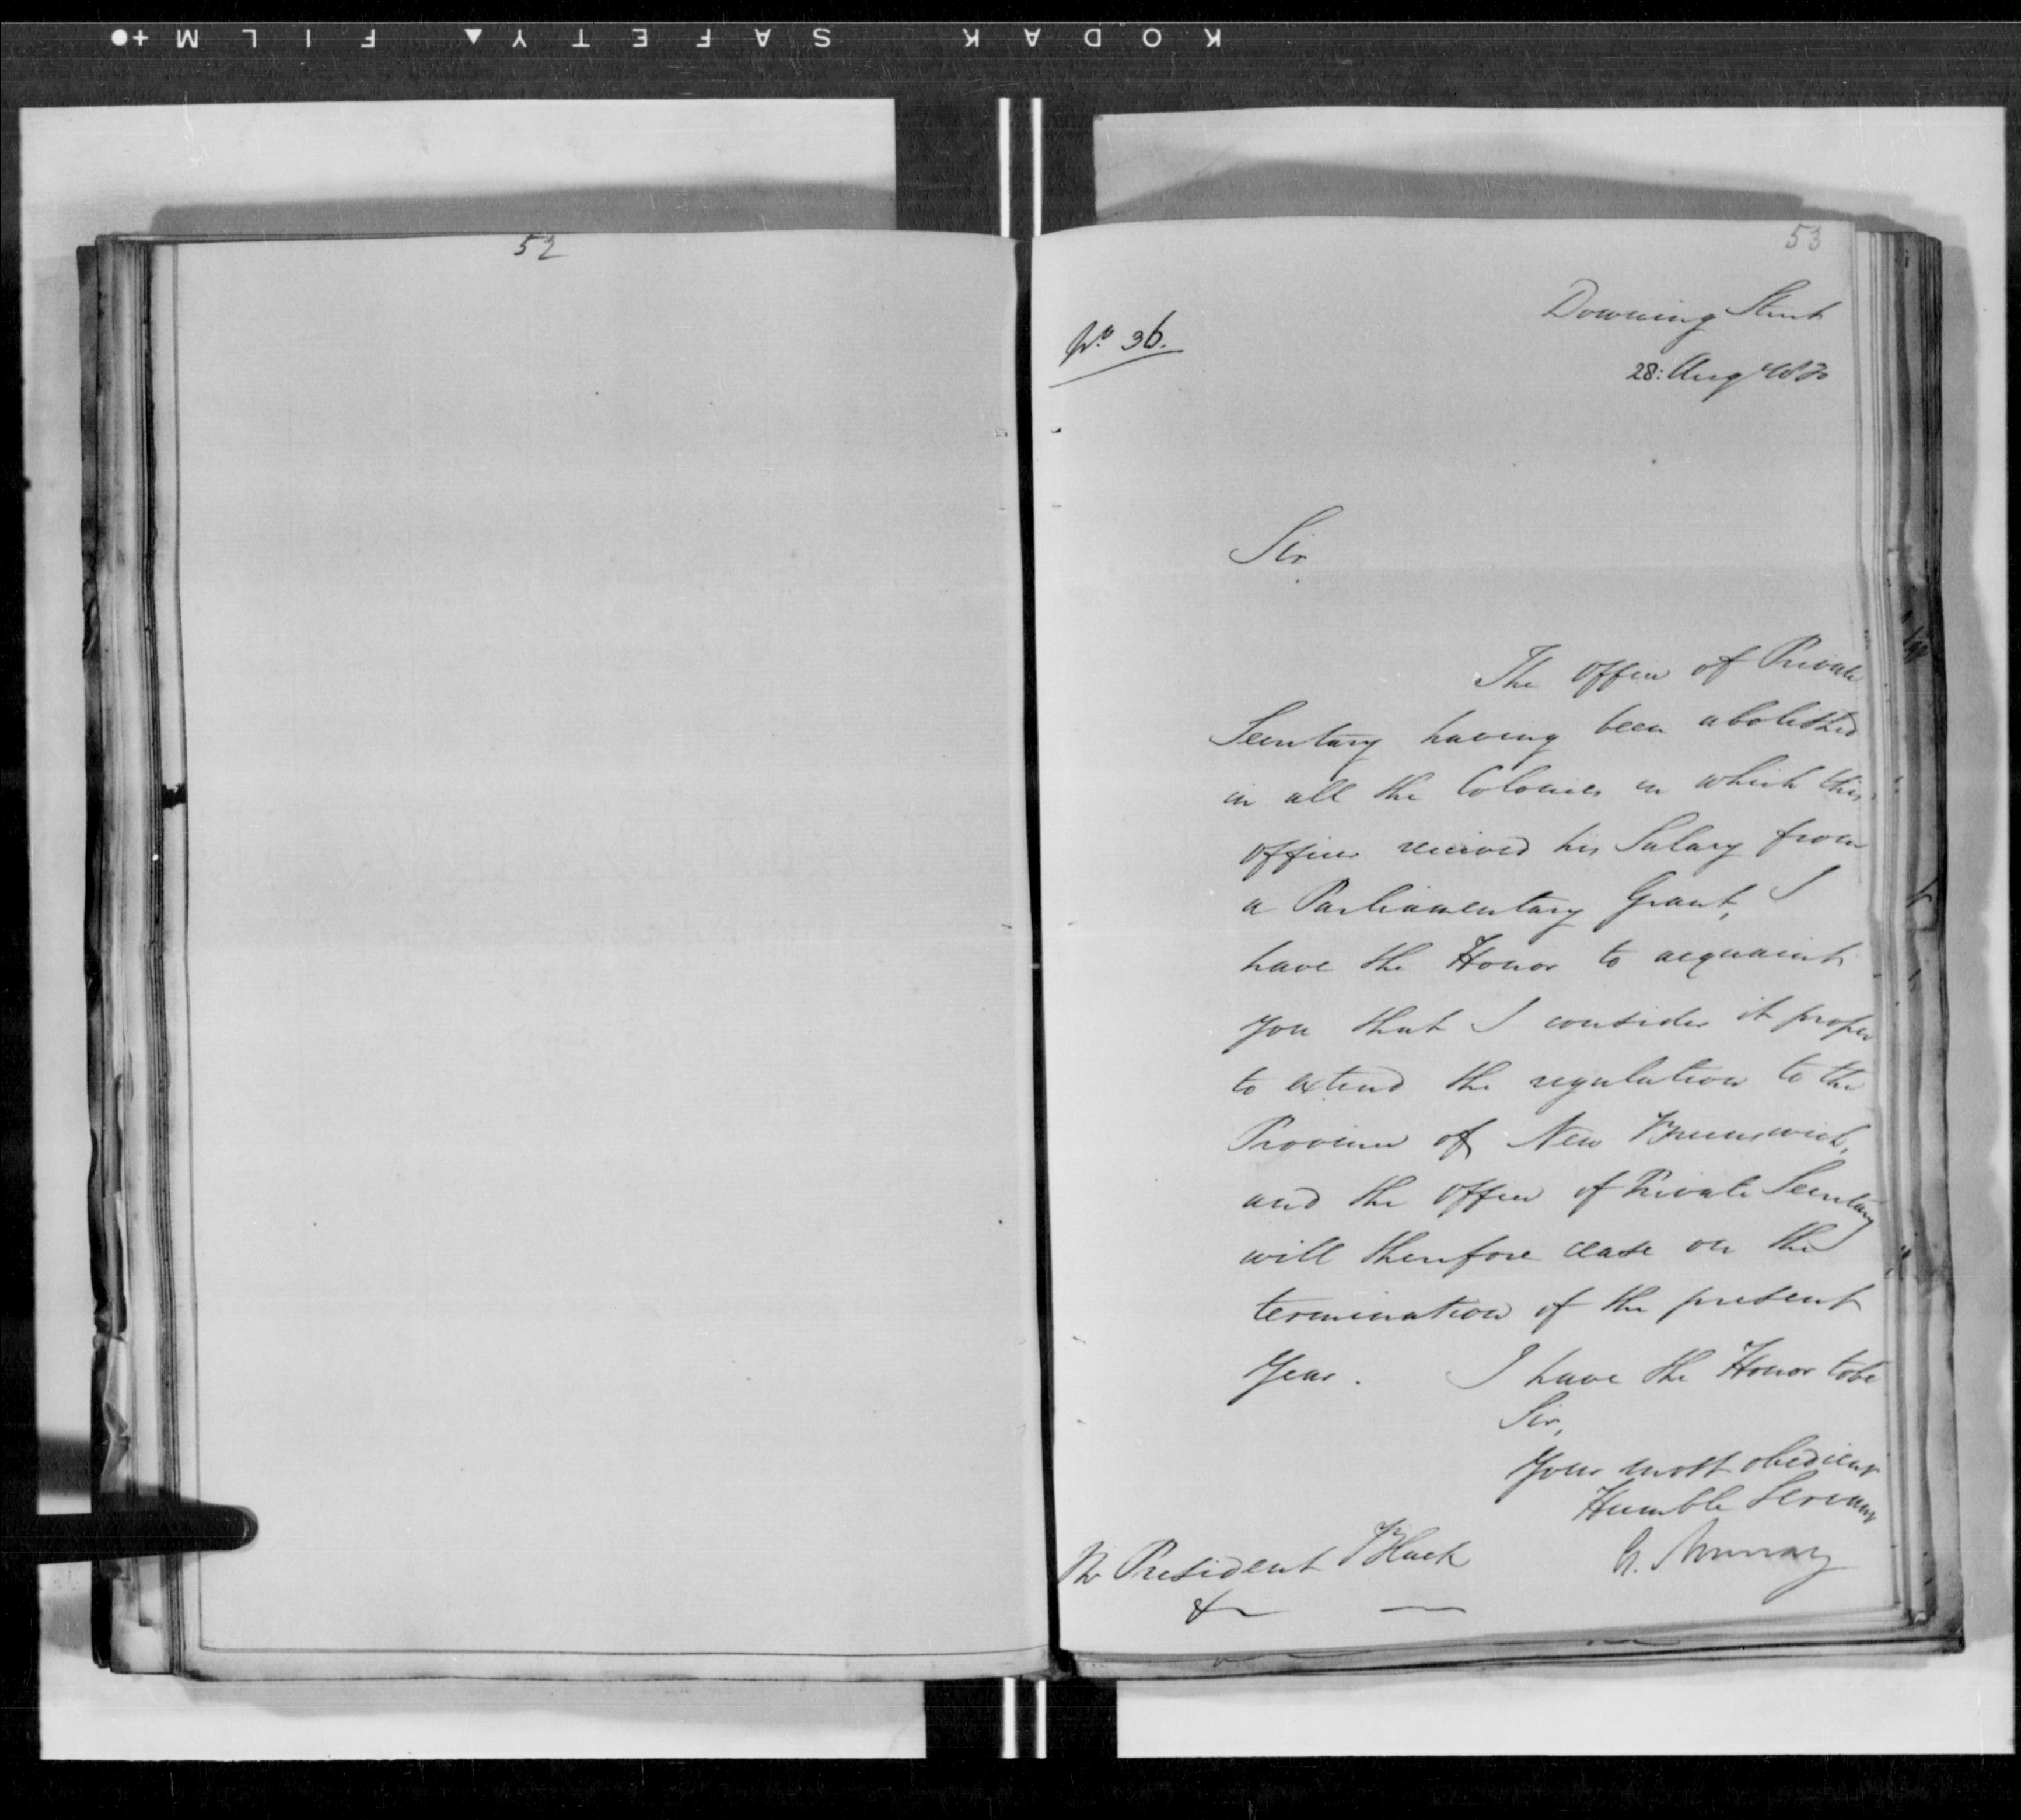 KODAK SAFETY FILM
52
53
No. 36.
Downing Street
28: Aug 1830
Sir
The Office of Private
Secretary having been abolished
in all the Colonies in which this
officer received his Salary from
a Parliamentary Grant, I
have the Honor to acquaint
you that I consider it proper
to extend the regulation to the
Province of New Brunswick,
and the Office of Private Secretary
will therefore cease on the
termination of the present
Year. I have the Honor to be
Sir,
Your most obedient
Humble Servant
G. Murray
Mr President Black
&c